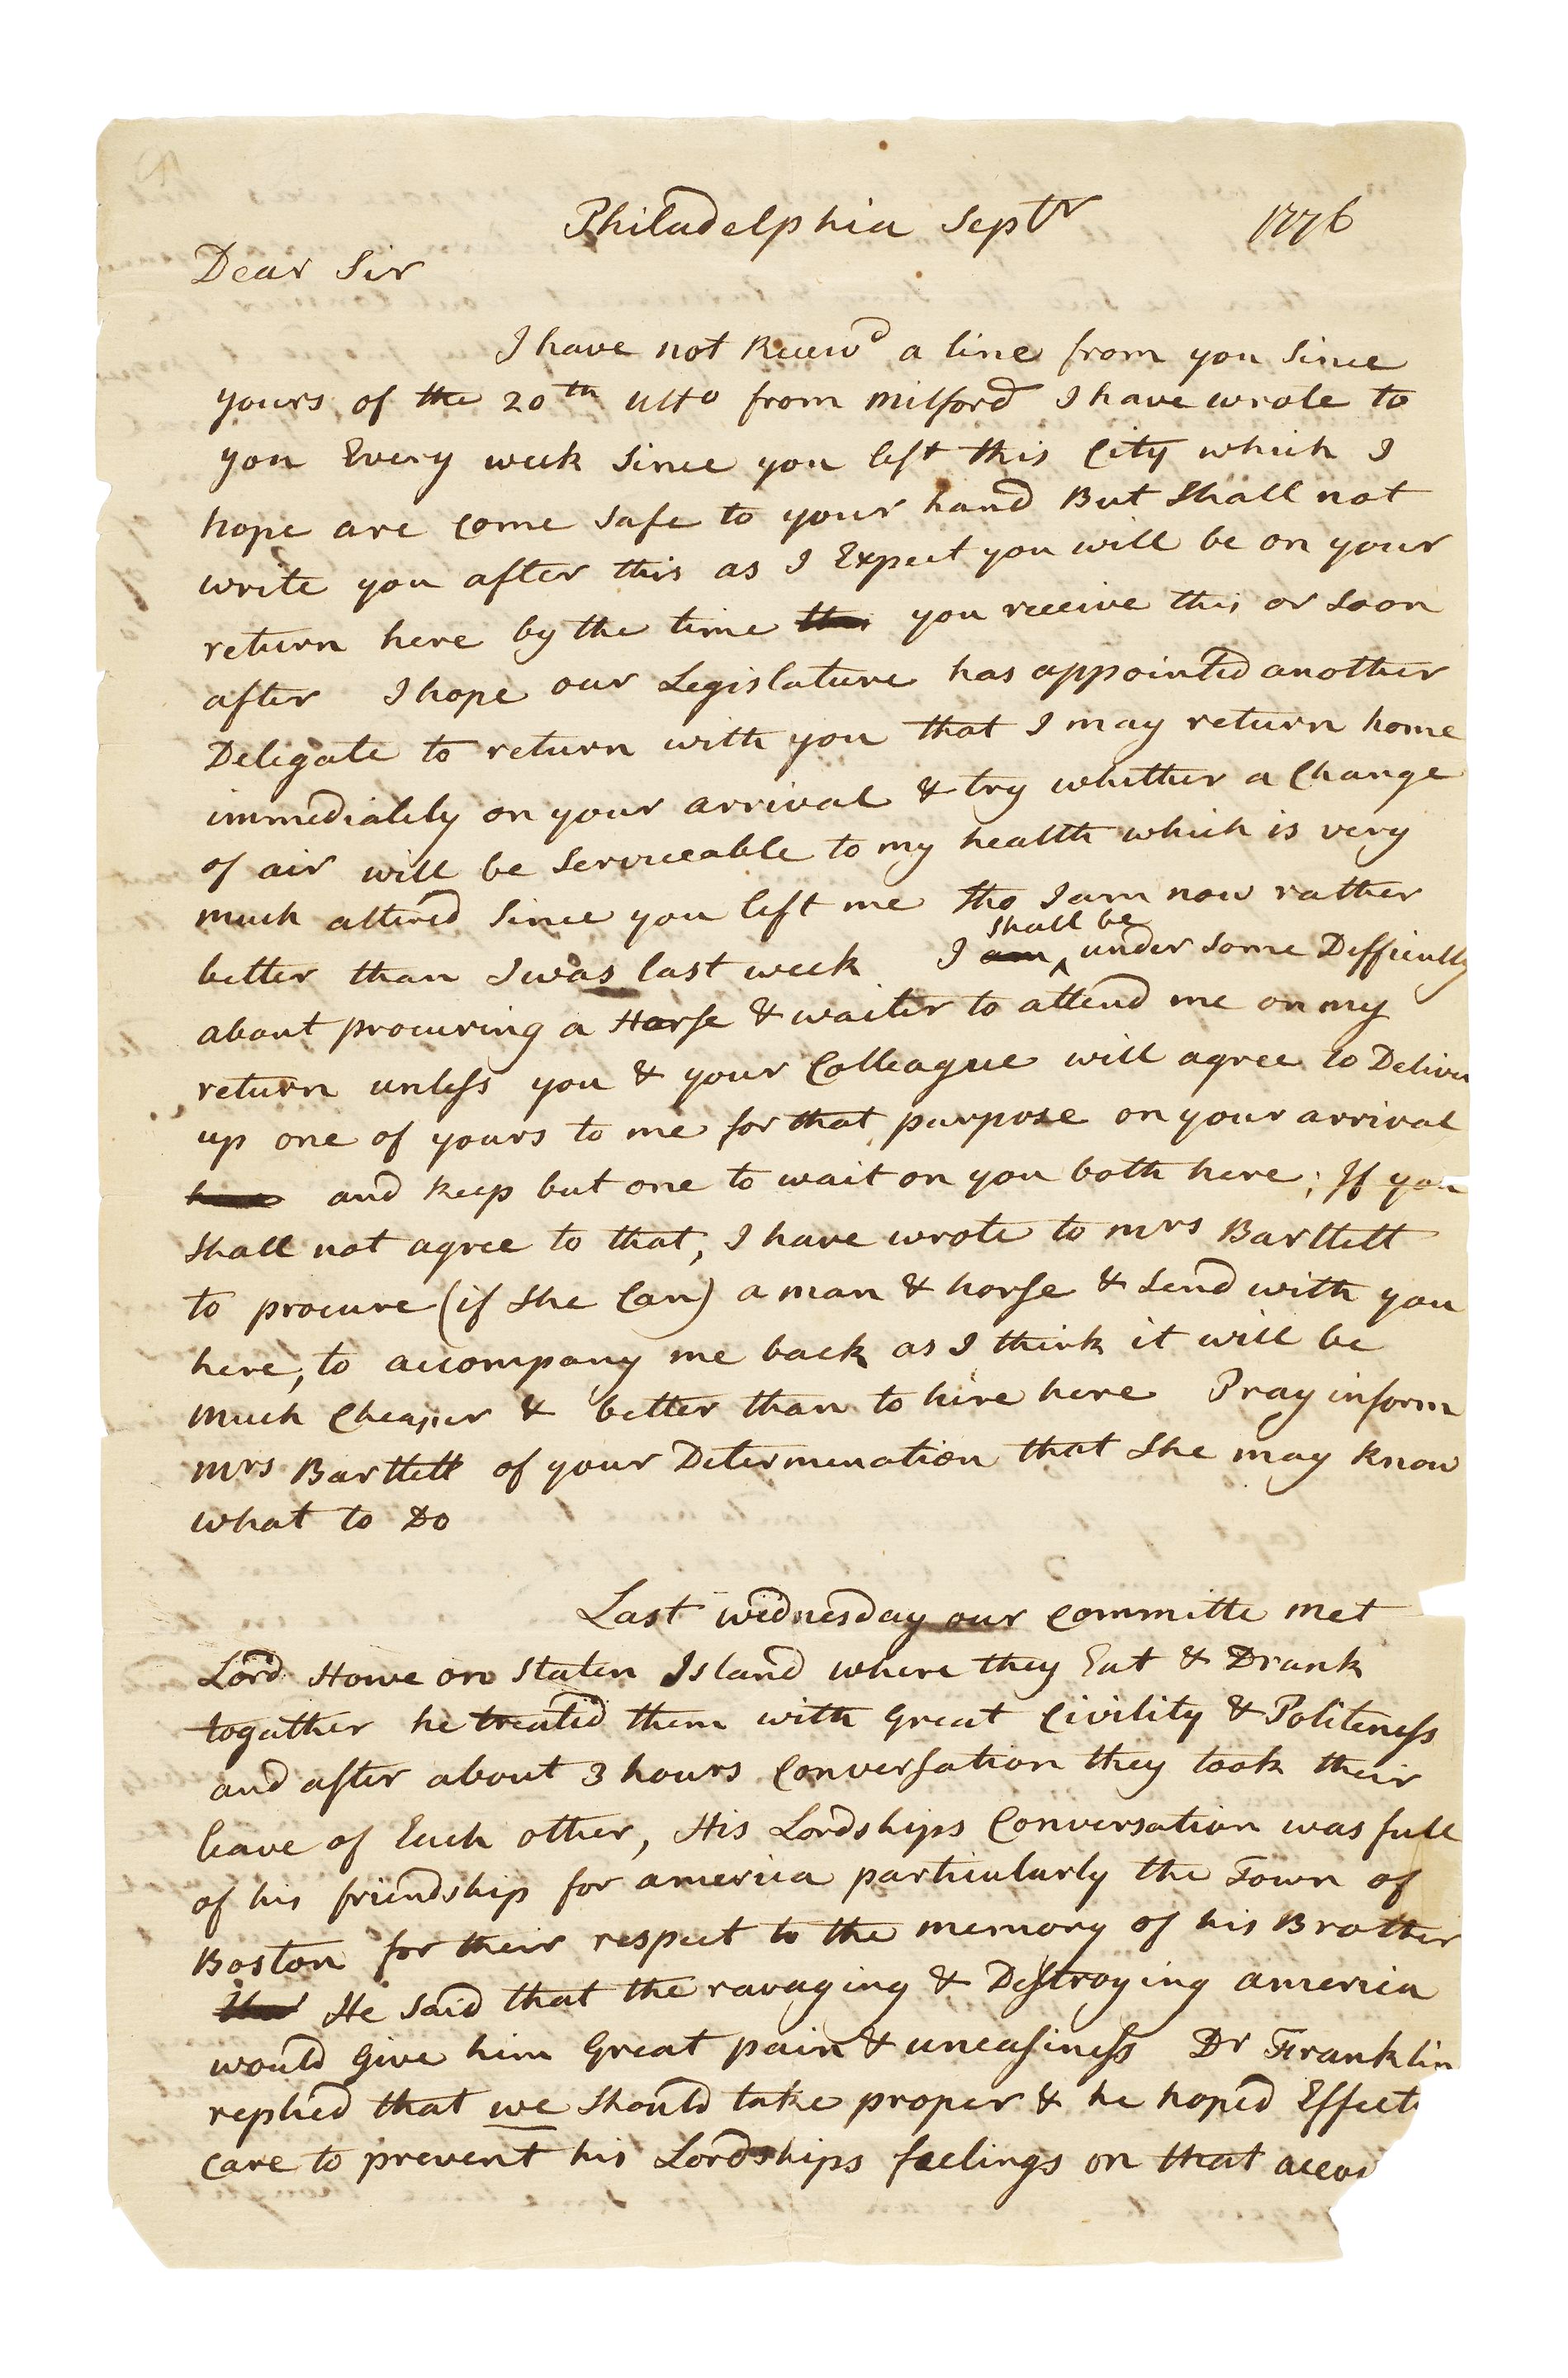 Philadelphia Septr 1776
Dear Sir
I have not Receivd a line from you Since
yours of the 20th ulto from Milford I have wrote to
you Every week Since you left this City which I
hope are Come Safe to your hand But Shall not
write you after this as I Expect you will be on your
return here by the time you receive this or Soon
after I hope our Legislature has appointed another
Deligate to return with you that I may return home
immediately on your arrival & try whether a Change
of air will be Serviceable to my health which is very
much altered Since you left me tho I am now rather
shall be
better than I was last week I am ^ under Some Difficulty
about procuring a Horse & waiter to attend me on my
return unless you & your Colleague will agree to Deliver
up one of yours to me for that purpose on your arrival
and keep but one to wait on you both here; If you
Shall not agree to that, I have wrote to Mrs Bartlett
to procure (if She Can) a man & horse & Send with you
here, to accompany me back as I think it will be
much Cheaper & better than to hire here Pray inform
Mrs Bartlett of your Determination that She may know
what to Do
Last wednesday our Committe met
Lord Howe on Staten Island where they Eat & Drank
togather he treated them with great Civility & Politeness
and after about 3 hours Conversation they took their
leave of Each other, His Lordships Conversation was full
of his friendship for america particularly the Town of
Boston for their respect to the memory of his Brother
He Said that the ravaging & Destroying america
would give him great pain & uneasiness Dr Franklin
replied that we Should take proper & he hoped Effect
care to prevent his Lordships feelings on that accou